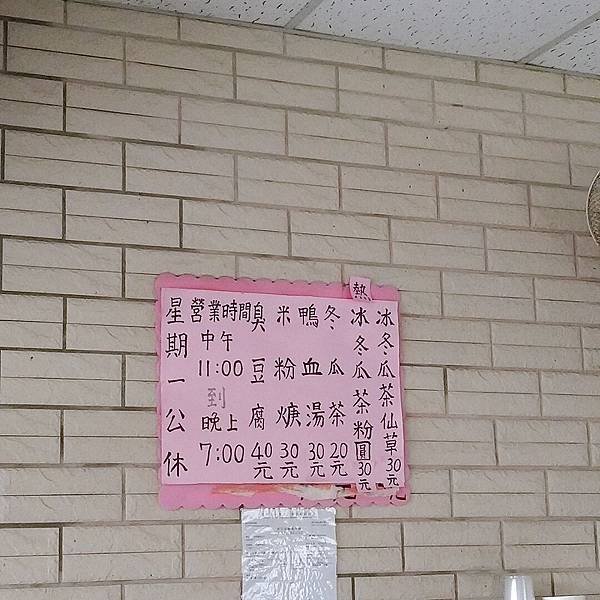 冰冬瓜茶仙草30元
熱
冰冬瓜茶粉圓30元
冬瓜茶20元
鴨血湯30元
米粉焿30元
臭豆腐40元
營業時間
中午
11:00
到
晚上
7:00
星期一公休